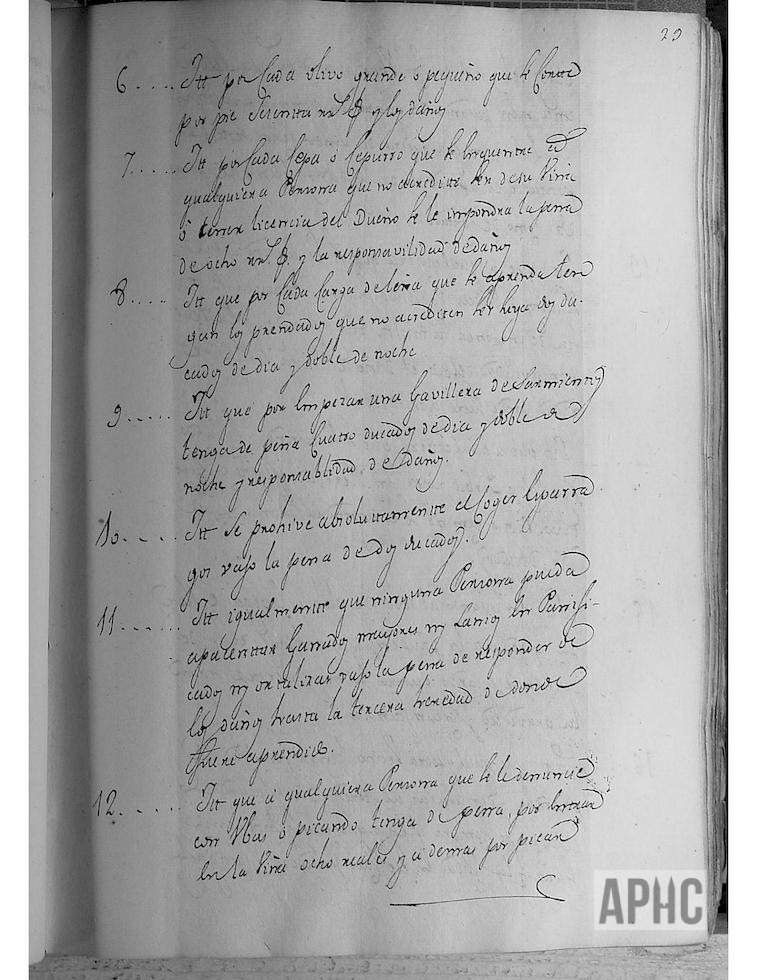 29
6..... Itt por Cada olivo grande o pequeño que se Corte
por pie sesenta rr.s $ y los daños
7..... Itt por Cada Cepa o Cepurro que se
qualquiera Persona que no acredite ser de su Viña
o tener licencia del Dueño se le impondra la pena
de ocho rr.s $ y la responsavilidad de daños
8..... Itt que por Cada Carga de leña que se aprenda ten
gan los prendados que no acrediten ser suya dos du-
cados de dia y doble de noche
9..... Itt que por Empezar una Gavillera de Sarmientos
tenga de peña Cuatro ducados de dia y doble de
noche y responsablidad de daños.
10..... Itt Se prohive absolutamente el Coger Esparra
gos vajo la pena de dos ducados.
11...... Itt igualmente que ninguna Persona pueda
apacentar Ganados mayores ny Lanios en Panifi-
cados ny ortalizas vajo la pena de responder de
los daños hasta la tercera heredad de donde
fuere aprendido.
12...... Itt que a qualquiera Persona que se le denuncie
con Ubas o picando tenga de pena, por entrar
en la Viña ocho reales y a demas por picar
APHC